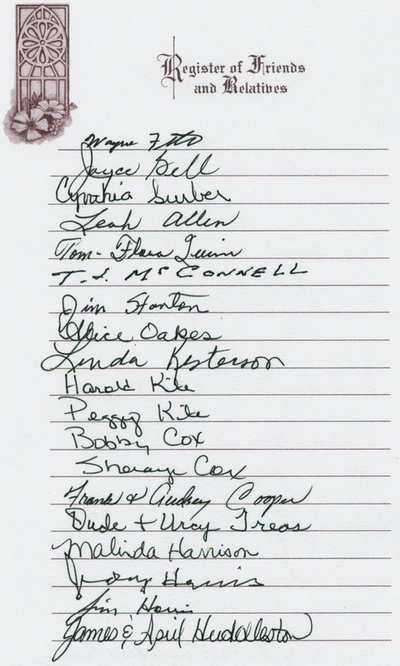 Register of Friends
and Relatives
Wayne
Joyce Bell
Cynthia Surber
Leah Allen
Tom - Flora Quinn
T. S. McCONNELL
Jim Stanton
Alice Oakes
Linda Kesterson
Harold Kile
Peggy Kile
Bobby Cox
Cox
Frank & Audrey Cooper
Dude + Urcy Treas
Malinda Harrison
Harris
Jim Harris
James & April Huddleston